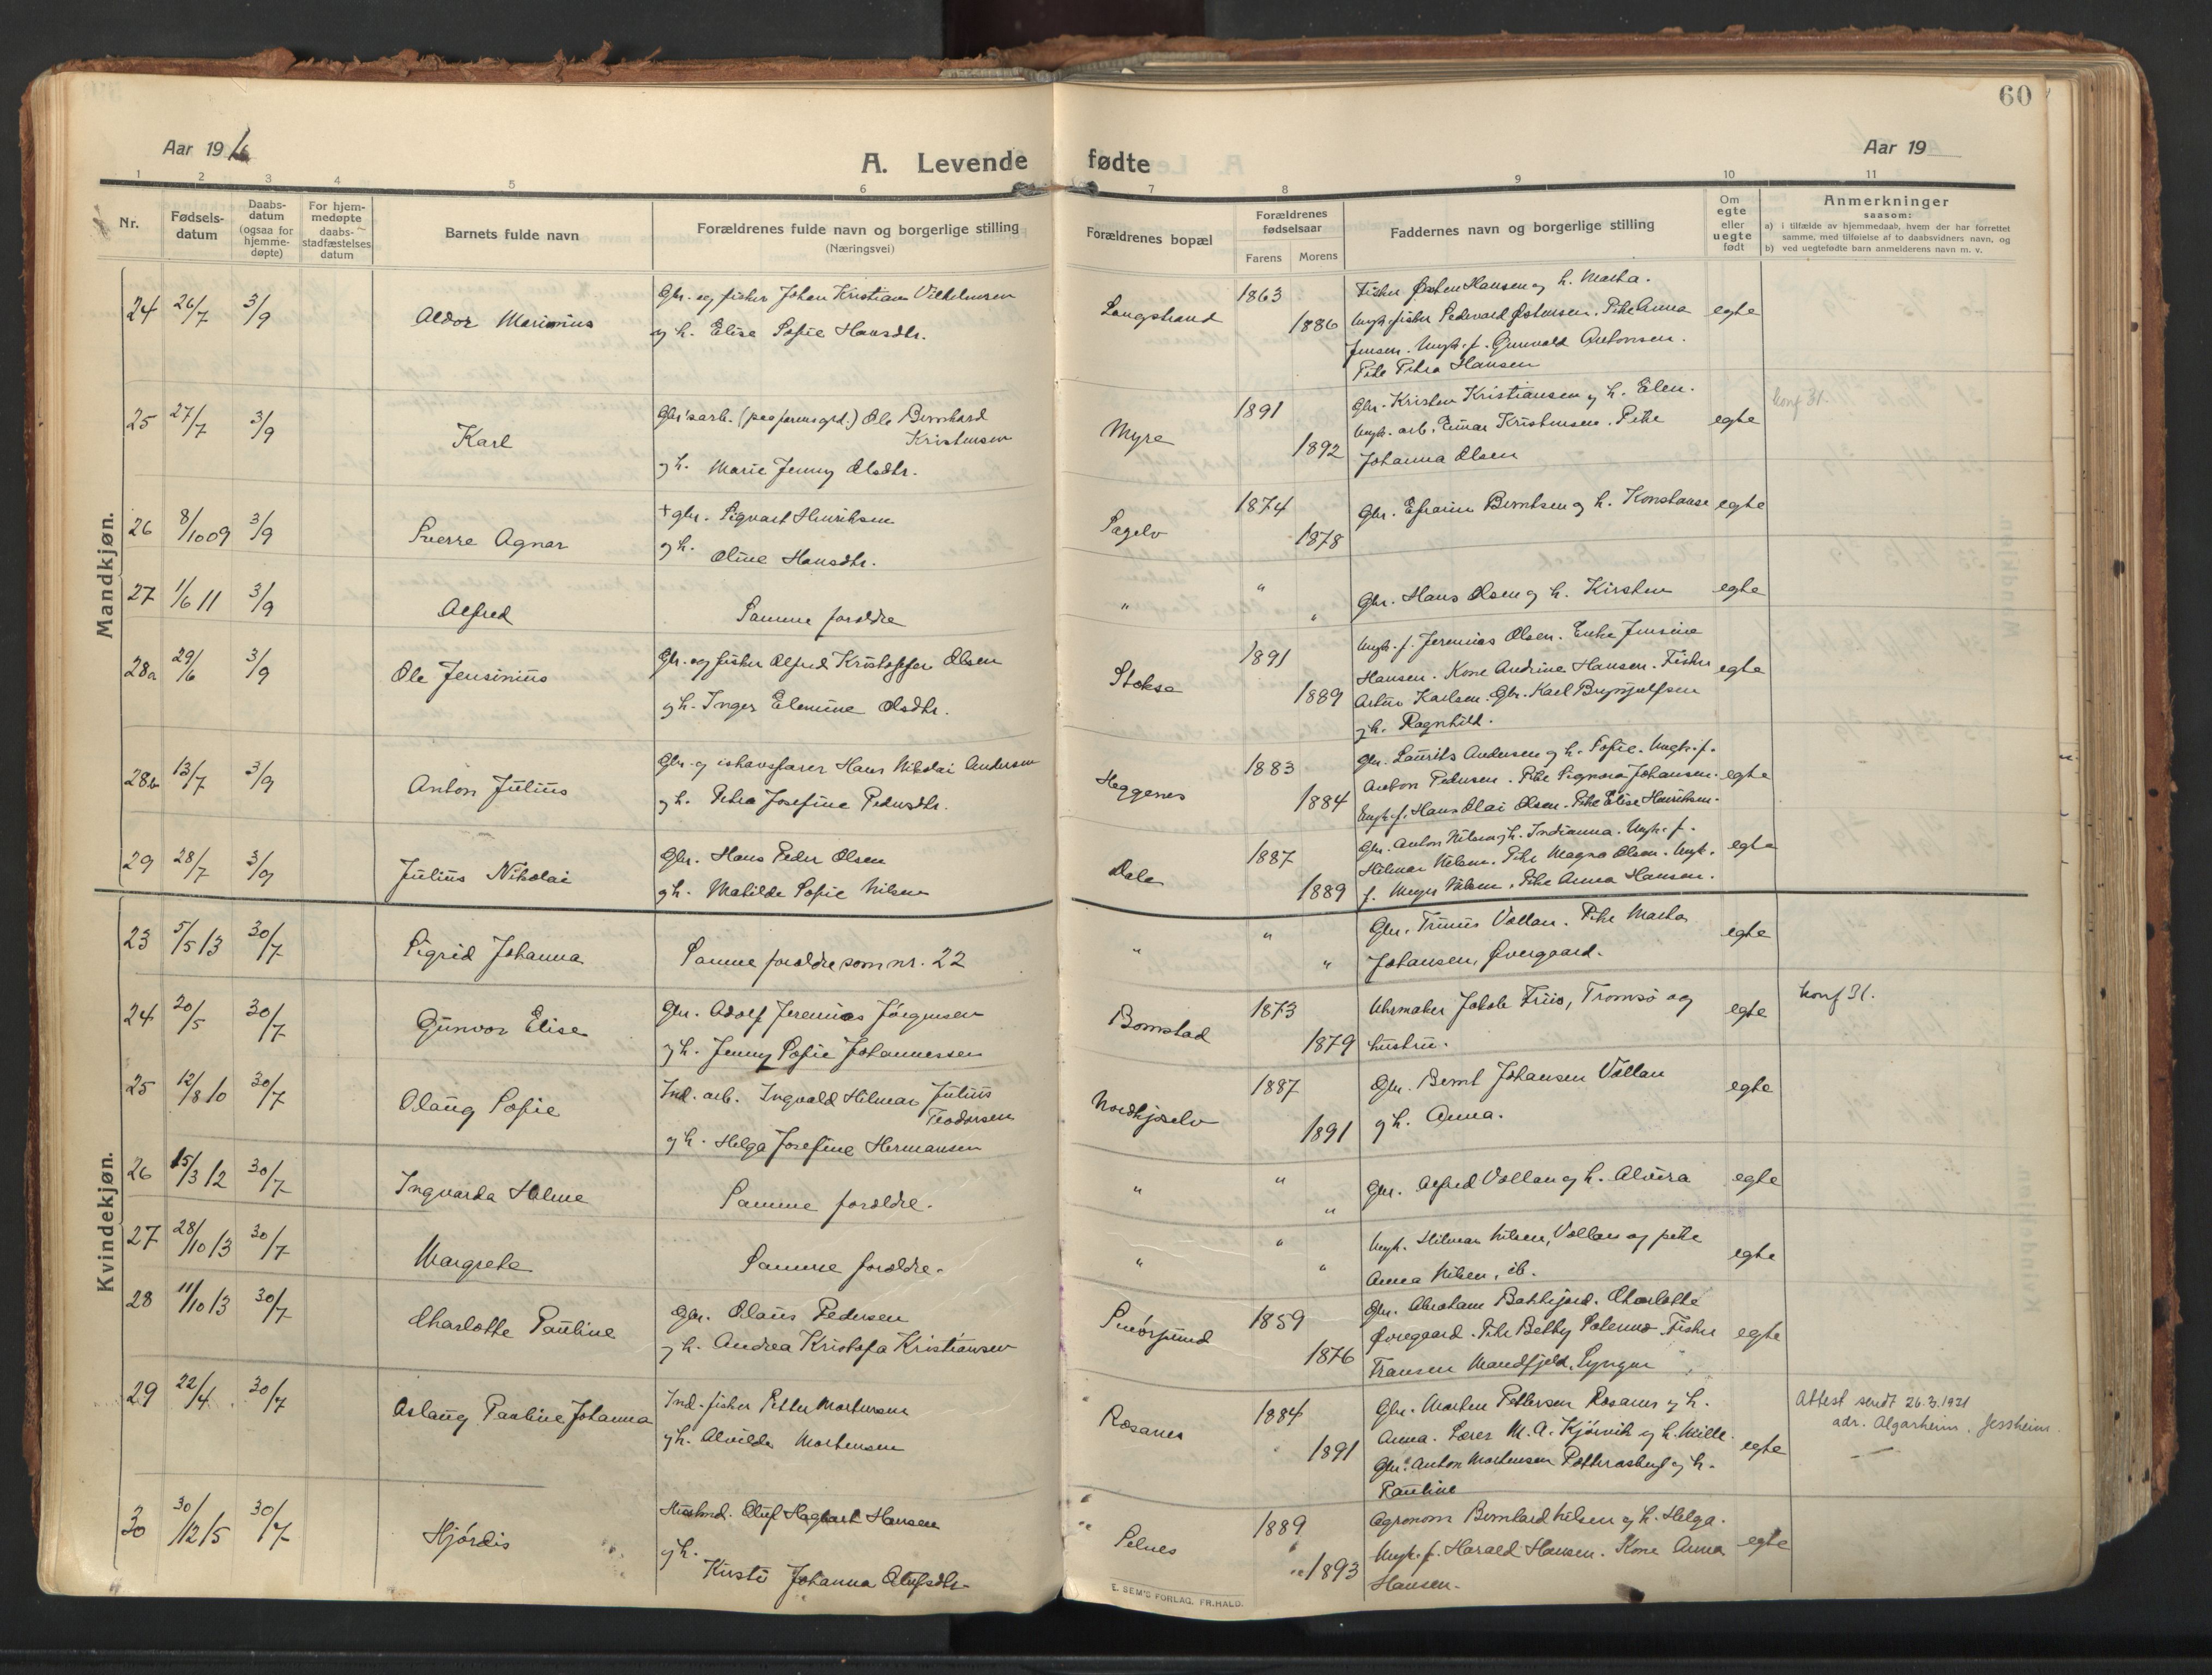 60
Aar 1916
A. Levende fødte
Aar 19
1 2 3 4 5 6 7 8 9 10 11
Nr.
Fødsels-
datum
Daabs-
datum
(ogsaa for
hjemme-
døpte)
For hjem-
medøpte
daabs-
stadfæstelses
datum
Barnets fulde navn
Forældrenes fulde navn og borgerlige stilling
(Næringsvei)
Forældrenes bopæl
Forældrenes
fødselsaar
Farens Morens
Faddernes navn og borgerlige stilling
Om
egte
eller
uegte
født
Anmerkninger
saasom:
a) i tilfælde av hjemmedaab, hvem der har forrettet
samme, med tilføielse af to daabsvidners navn, og
b) ved uegtefødte barn anmelderens navn m. v.
Mandkjøn.
24 26/7 3/9 Aldor Marinius
Gbr. og fisker Johan Kristian Vilhelmsen
og h. Elise Sofie Hansdtr.
Langstrand 1863 1886
Fisker Østen Hansen og h. Marta.
Ungk. fisker Pedevard Østensen. Pike Anna
Jensen. Ungk. f. Gunvald Antonsen.
Pike Petra Hansen
egte
25 27/7 3/9 Karl
Gbr's arb. (paa farens grd.) Ole Bernhard
Kristensen
og h. Marie Jenny Olsdtr.
Myre 1891 1892
Gbr. Kristen Kristiansen og h. Elen.
Ungk. arb. Einar Kristensen. Pike
Johanna Olsen
egte
konf 31.
26 8/10 09 3/9 Sverre Agnar
+ gbr. Sigvart Henriksen
og h. Oline Hansdtr.
Sagelv 1874 1878
Gbr. Efraim Berntsen og h. Konstanse
egte
27 1/6 11 3/9 Alfred
Samme forældre
" " "
Gbr. Hans Olsen og h. Kirsten
egte
28a 29/6 3/9 Ole Jensinius
Gbr. og fisker Alfred Kristoffer Olsen
og h. Inger Elemine Olsdtr.
Stokse 1891 1889
Ungk. f. Jeremias Olsen. Enke Jensine
Hansen. Kone Andrine Hansen. Fisker
Artur Karlsen. Gbr. Karl Brynjulfsen
og h. Ragnhild.
egte
28b 13/7 3/9 Anton Julius
Gbr. og ishavsfarer Hans Nikolai Andersen
og h. Petra Josefine Pedersdtr.
Heggenes 1883 1884
Gbr. Laurits Andersen og h. Sofie. Ungk. f.
Anton Pedersen. Pike Signora Johansen.
Ungk. f. Hans Olai Olsen. Pike Elise Henriksen.
egte
29 28/7 3/9 Julius Nikolai
Gbr. Hans Peder Olsen
og h. Matilde Sofie Nilsen
Dale 1887 1889
Gbr. Anton Nilsen og h. Indianna. Ungk. f.
Hilmar Nilsen. Pike Magna Olsen. Ungk.
f. Meyer Nilsen. Pike Anna Hansen.
egte
Kvindekjøn.
23 5/5 13 30/7 Sigrid Johanna
Samme forældre som nr. 22
" " "
Gbr. Trinus Vollan. Pike Marta
Johansen, Øvergaard.
egte
24 20/5 30/7 Gunvor Elise
Gbr. Adolf Jeremias Jørgensen
og h. Jenny Sofie Johannessen
Bomstad 1873 1879
Uhrmaker Jakob Friis, Tromsø og
hustru.
egte
konf 31.
25 12/8 10 30/7 Olaug Sofie
Ind. arb. Ingvald Hilmar Julius
Teodorsen
og h. Helga Josefine Hermansen
Nordkjoselv 1887 1891
Gbr. Bernt Johansen Vollan
og h. Anna.
egte
26 15/3 12 30/7 Ingvarda Halme
Samme forældre.
" " "
Gbr. Alfred Vollan og h. Alvira
egte
27 28/10 13 30/7 Margrete
Samme forældre.
" " "
Ungk. Hilmar Nilsen, Vollan og pike
Anna Nilsen, ib.
egte
28 11/10 13 30/7 Charlotte Pauline
Gbr. Olaus Pedersen
og h. Andrea Kristofa Kristiansen
Smørsund 1859 1876
Gbr. Abraham Bakkejord. Charlotte
Øvergaard. Pike Betty Solenes. Fisker
Fransen Mandfjeld, Lyngen
egte
29 22/4 30/7 Aslaug Pauline Johanna
Ind. fisker Petter Mortensen
og h. Alvilda Mortensen
Rosanes 1884 1891
Gbr. Morten Pettersen Rosanes og h.
Anna. Lærer M. A. Kjørvik og h. Mille.
Gbr. Anton Mortensen og h.
Pauline
egte
Attest sendt 26.3.1921
adr. Algarheim, Jessheim.
30 30/12 15 30/7 Hjørdis
Husmd. Oluf Hagbart Hansen
og h.
Kirsti Johanna Olufsdtr.
Selnes 1889 1893
Agronom Bernhard Nilsen og h. Helga.
Ungk. f. Harald Hansen. Kone Anna
Hansen.
egte
E. SEM'S FORLAG, FR.HALD.